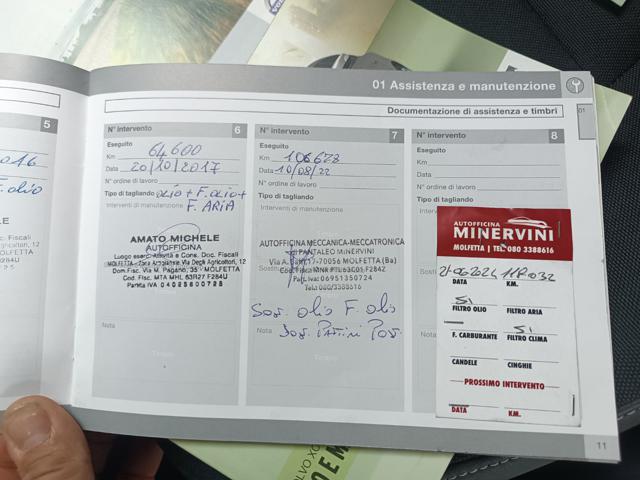 01 Assistenza e manutenzione
Documentazione di assistenza e timbri
01
5
2016
F. olio
Cod. Fiscali
N° intervento 6
Eseguito
Km 64600
Data 20/10/2017
N° ordine di lavoro
Tipo di tagliando OLIO + F. OLIO +
Interventi di manutenzione F. ARIA
AMATO MICHELE
AUTOFFICINA
Luogo eserc. Attività e Cons. Doc. Fiscali
MOLFETTA - Zona Artigianale Via Degli Agricoltori, 12
Dom. Fisc. Via M. Pagano, 35 - MOLFETTA
Cod. Fisc. MTA MHL 63P27 F284U
Partita IVA 04025600725
Nota
N° intervento 7
Eseguito
Km 106628
Data 10/08/22
N° ordine di lavoro
Tipo di tagliando
Interventi di manutenzione
AUTOFFICINA MECCANICA-MECCATRONICA
PANTALEO MINERVINI
70056 MOLFETTA (Ba)
Part. Iva: 06951350724
Tel.: 080/3388616
Sos. olio F. olio
Nota Sos. Pattini Pos.
N° intervento 8
Eseguito
Km
Data
N° ordine di lavoro
Tipo di tagliando
AUTOFFICINA
MINERVINI
MOLFETTA | TEL. 080 3388616
DATA KM.
SI
FILTRO OLIO FILTRO ARIA
SI
F. CARBURANTE FILTRO CLIMA
CANDELE CINGHIE
PROSSIMO INTERVENTO
DATA KM.
11